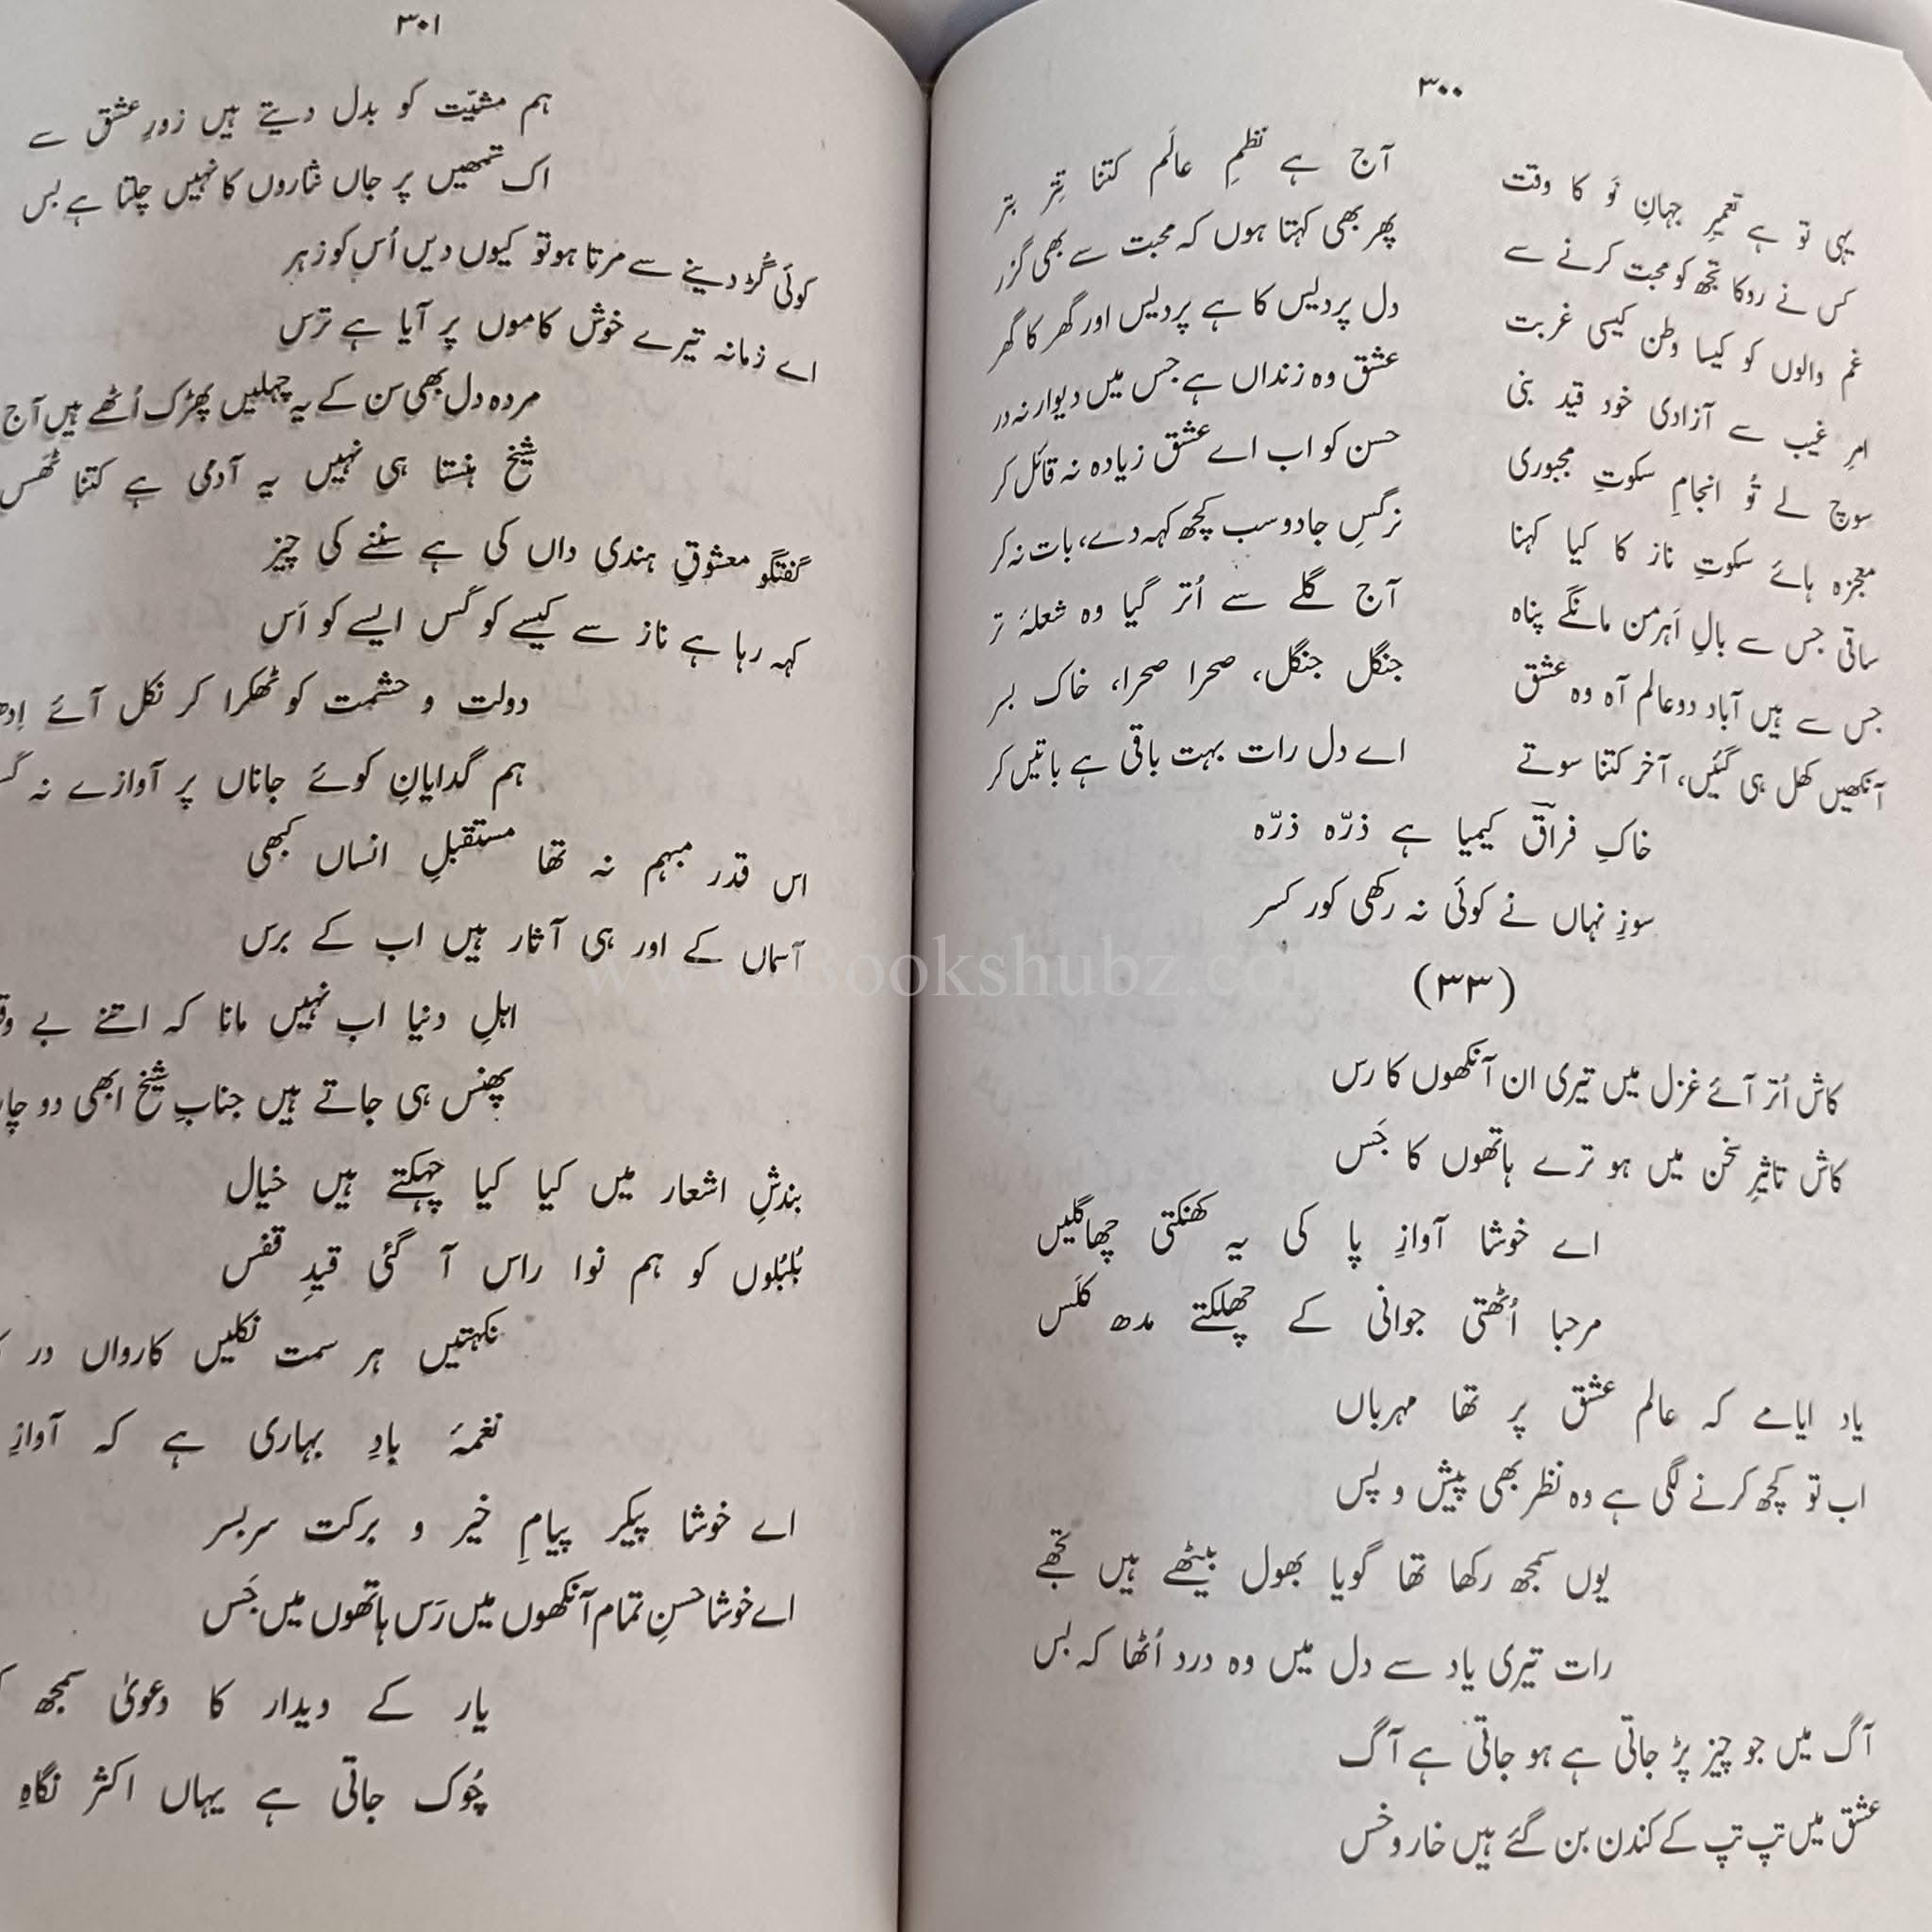 ۳۰۰
یہی تو ہے تعمیرِ جہانِ نَو کا وقت آج ہے نظمِ عالَم کتنا تِتر بتر
کس نے روکا تجھ کو محبت کرنے سے پھر بھی کہتا ہوں کہ محبت سے بھی گزر
غم والوں کو کیسا وطن کیسی غربت دل پردیس کا ہے پردیس اور گھر کا گھر
امرِ غیب سے آزادی خود قید بنی عشق وہ زنداں ہے جس میں دیوار نہ در
سوچ لے تُو انجامِ سکوتِ مجبوری حسن کو اب اے عشق زیادہ نہ قائل کر
معجزہ ہائے سکوتِ ناز کا کیا کہنا نرگسِ جادو سب کچھ کہہ دے، بات نہ کر
ساقی جس سے بالِ اَہرمن مانگے پناہ آج گلے سے اُتر گیا وہ شعلۂ تر
جس سے ہیں آباد دوعالم آہ وہ عشق جنگل جنگل، صحرا صحرا، خاک بسر
آنکھیں کھل ہی گئیں، آخر کتنا سوتے اے دل رات بہت باقی ہے باتیں کر
خاکِ فراقؔ کیمیا ہے ذرّہ ذرّہ
سوزِ نہاں نے کوئی نہ رکھی کور کسر
(۳۳)
کاش اُتر آئے غزل میں تیری ان آنکھوں کا رس
کاش تاثیرِ سخن میں ہو ترے ہاتھوں کا جَس
اے خوشا آوازِ پا کی یہ کھنکتی چھاگلیں
مرحبا اُٹھتی جوانی کے چھلکتے مدھ کلَس
یاد ایامے کہ عالم عشق پر تھا مہرباں
اب تو کچھ کرنے لگی ہے وہ نظر بھی پیش و پس
یوں سمجھ رکھا تھا گویا بھول بیٹھے ہیں تجھے
رات تیری یاد سے دل میں وہ درد اُٹھا کہ بس
آگ میں جو چیز پڑ جاتی ہے ہو جاتی ہے آگ
عشق میں تپ تپ کے کندن بن گئے ہیں خار و خس
۳۰۱
ہم مشیّت کو بدل دیتے ہیں زورِ عشق سے
اک تمھیں پر جاں نثاروں کا نہیں چلتا ہے بس
کوئی گُڑ دینے سے مرتا ہو تو کیوں دیں اُس کو زہر
اے زمانہ تیرے خوش کاموں پر آیا ہے ترَس
مردہ دل بھی سن کے یہ چہلیں پھڑک اُٹھے ہیں آج
شیخ ہنستا ہی نہیں یہ آدمی ہے کتنا ٹھس
گفتگو معشوقِ ہندی داں کی ہے سننے کی چیز
کہہ رہا ہے ناز سے کیسے کو کَس ایسے کو اَس
دولت و حشمت کو ٹھکرا کر نکل آئے
ہم گدایانِ کوئے جاناں پر آوازے نہ
اس قدر مبہم نہ تھا مستقبلِ انساں کبھی
آسماں کے اور ہی آثار ہیں اب کے برس
اہلِ دنیا اب نہیں مانا کہ اتنے بے
پھنس ہی جاتے ہیں جنابِ شیخ ابھی دو
بندشِ اشعار میں کیا کیا چہکتے ہیں خیال
بُلبُلوں کو ہم نوا راس آ گئی قیدِ قفس
نکہتیں ہر سمت نکلیں کارواں در
نغمۂ بادِ بہاری ہے کہ آوازِ
اے خوشا پیکر پیامِ خیر و برکت سربسر
اے خوشا حسنِ تمام آنکھوں میں رَس ہاتھوں میں جَس
یار کے دیدار کا دعویٰ سمجھ
چُوک جاتی ہے یہاں اکثر نگاہِ